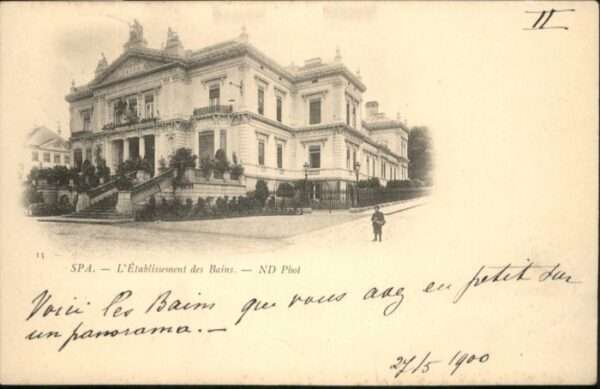 II
15
SPA. — L'Établissement des Bains. — ND Phot
Voici les Bains que vous avez en petit sur
un panorama. —
27/5 1900